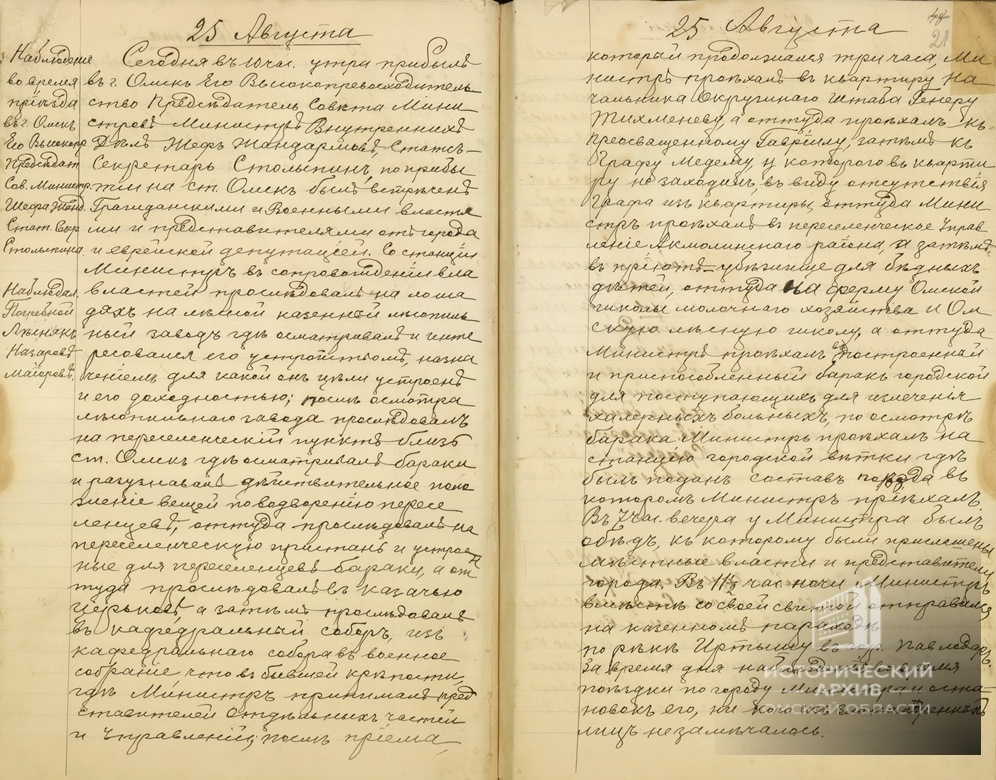 25 Августа
Наблюдение
во время
приѣзда
въ г. Омскъ
Его Высокопр
Предсѣдат.
Сов. Министр.
Шефа Жанд.
Стат. Секр
Столыпина
Наблюдал.
Погребной
Лѣсняк
Назаровъ
Майоровъ.
Сегодня въ 10 час. утра прибылъ
въ г. Омскъ Его Высокопревосходитель
ство Предсѣдатель Совѣта Мини
стровъ Министръ Внутреннихъ
Дѣлъ Шефъ Жандармовъ, Статсъ-
Секретарь Столыпинъ, по прибы
тіи на ст. Омскъ былъ встрѣченъ
Гражданскими и Военными властя
ми и представителями отъ города
и еврейской депутаціей. Со станціи
Министръ въ сопровожденіи вла
властей прослѣдовалъ на лоша
дяхъ на лѣсной казенный лѣсопиль
ный заводъ гдѣ осматривалъ и инте
ресовался его устройствомъ, назна
ченіемъ для какой онъ цѣли устроенъ
и его доходностью; послѣ осмотра
лѣсопильнаго завода прослѣдовалъ
на переселенческій пунктъ близъ
ст. Омскъ гдѣ осматривалъ бараки
и разузнавалъ дѣйствительное поло
женіе вещей по водворенію пересе
ленцевъ, оттуда прослѣдовалъ на
переселенческую пристань и устроен
ные для переселенцевъ бараки, а от
туда прослѣдовалъ въ казачью
церковь, а затѣмъ прослѣдовалъ
въ кафедральный соборъ, изъ
кафедральнаго собора въ военное
собраніе, что въ бывшей крѣпости,
гдѣ Министръ принималъ пред
ставителей отдѣльныхъ частей
и Управленій; послѣ пріема,
25 Августа
21
который продолжался три часа, Ми
нистръ проѣхалъ въ квартиру На
чальника Окружнаго Штаба Генеру
Тихменеву, а оттуда проѣхалъ къ
преосвященному Гавріилу, затѣмъ къ
Графу Медему, у котораго въ кварти
ру не заходилъ, въ виду отсутствія
Графа изъ квартиры, оттуда Мини
стръ проѣхалъ въ переселенческое Управ
леніе Акмолинскаго района, а затѣмъ
въ пріютъ-убѣжище для бѣдныхъ
дѣтей, оттуда на ферму Омской
школы молочнаго хозяйства и Ом
скую лѣсную школу, а оттуда
Министръ проѣхалъ въ построенный
и приспособленный баракъ городской
для поступающихъ для излеченія
холерныхъ больныхъ, по осмотрѣ
барака Министръ проѣхалъ на
станцію городской вѣтки гдѣ
былъ поданъ составъ поѣзда въ
которомъ Министръ пріѣхалъ.
Въ 7 час. вечера у Министра былъ
обѣдъ, къ которому были приглашены
мѣстные власти и представители
города. Въ 11½ час. ночи Министръ
вмѣстѣ со своей свитой отправился
на казенномъ пароходѣ
по рѣкѣ Иртышу въ гор. Павлодаръ.
За время дня наблюденія во время
поѣздки по городу Министра и оста
новокъ его, ни кого изъ
лицъ не замѣчалось.
ИСТОРИЧЕСКИЙ
АРХИВ
ОМСКОЙ ОБЛАСТИ